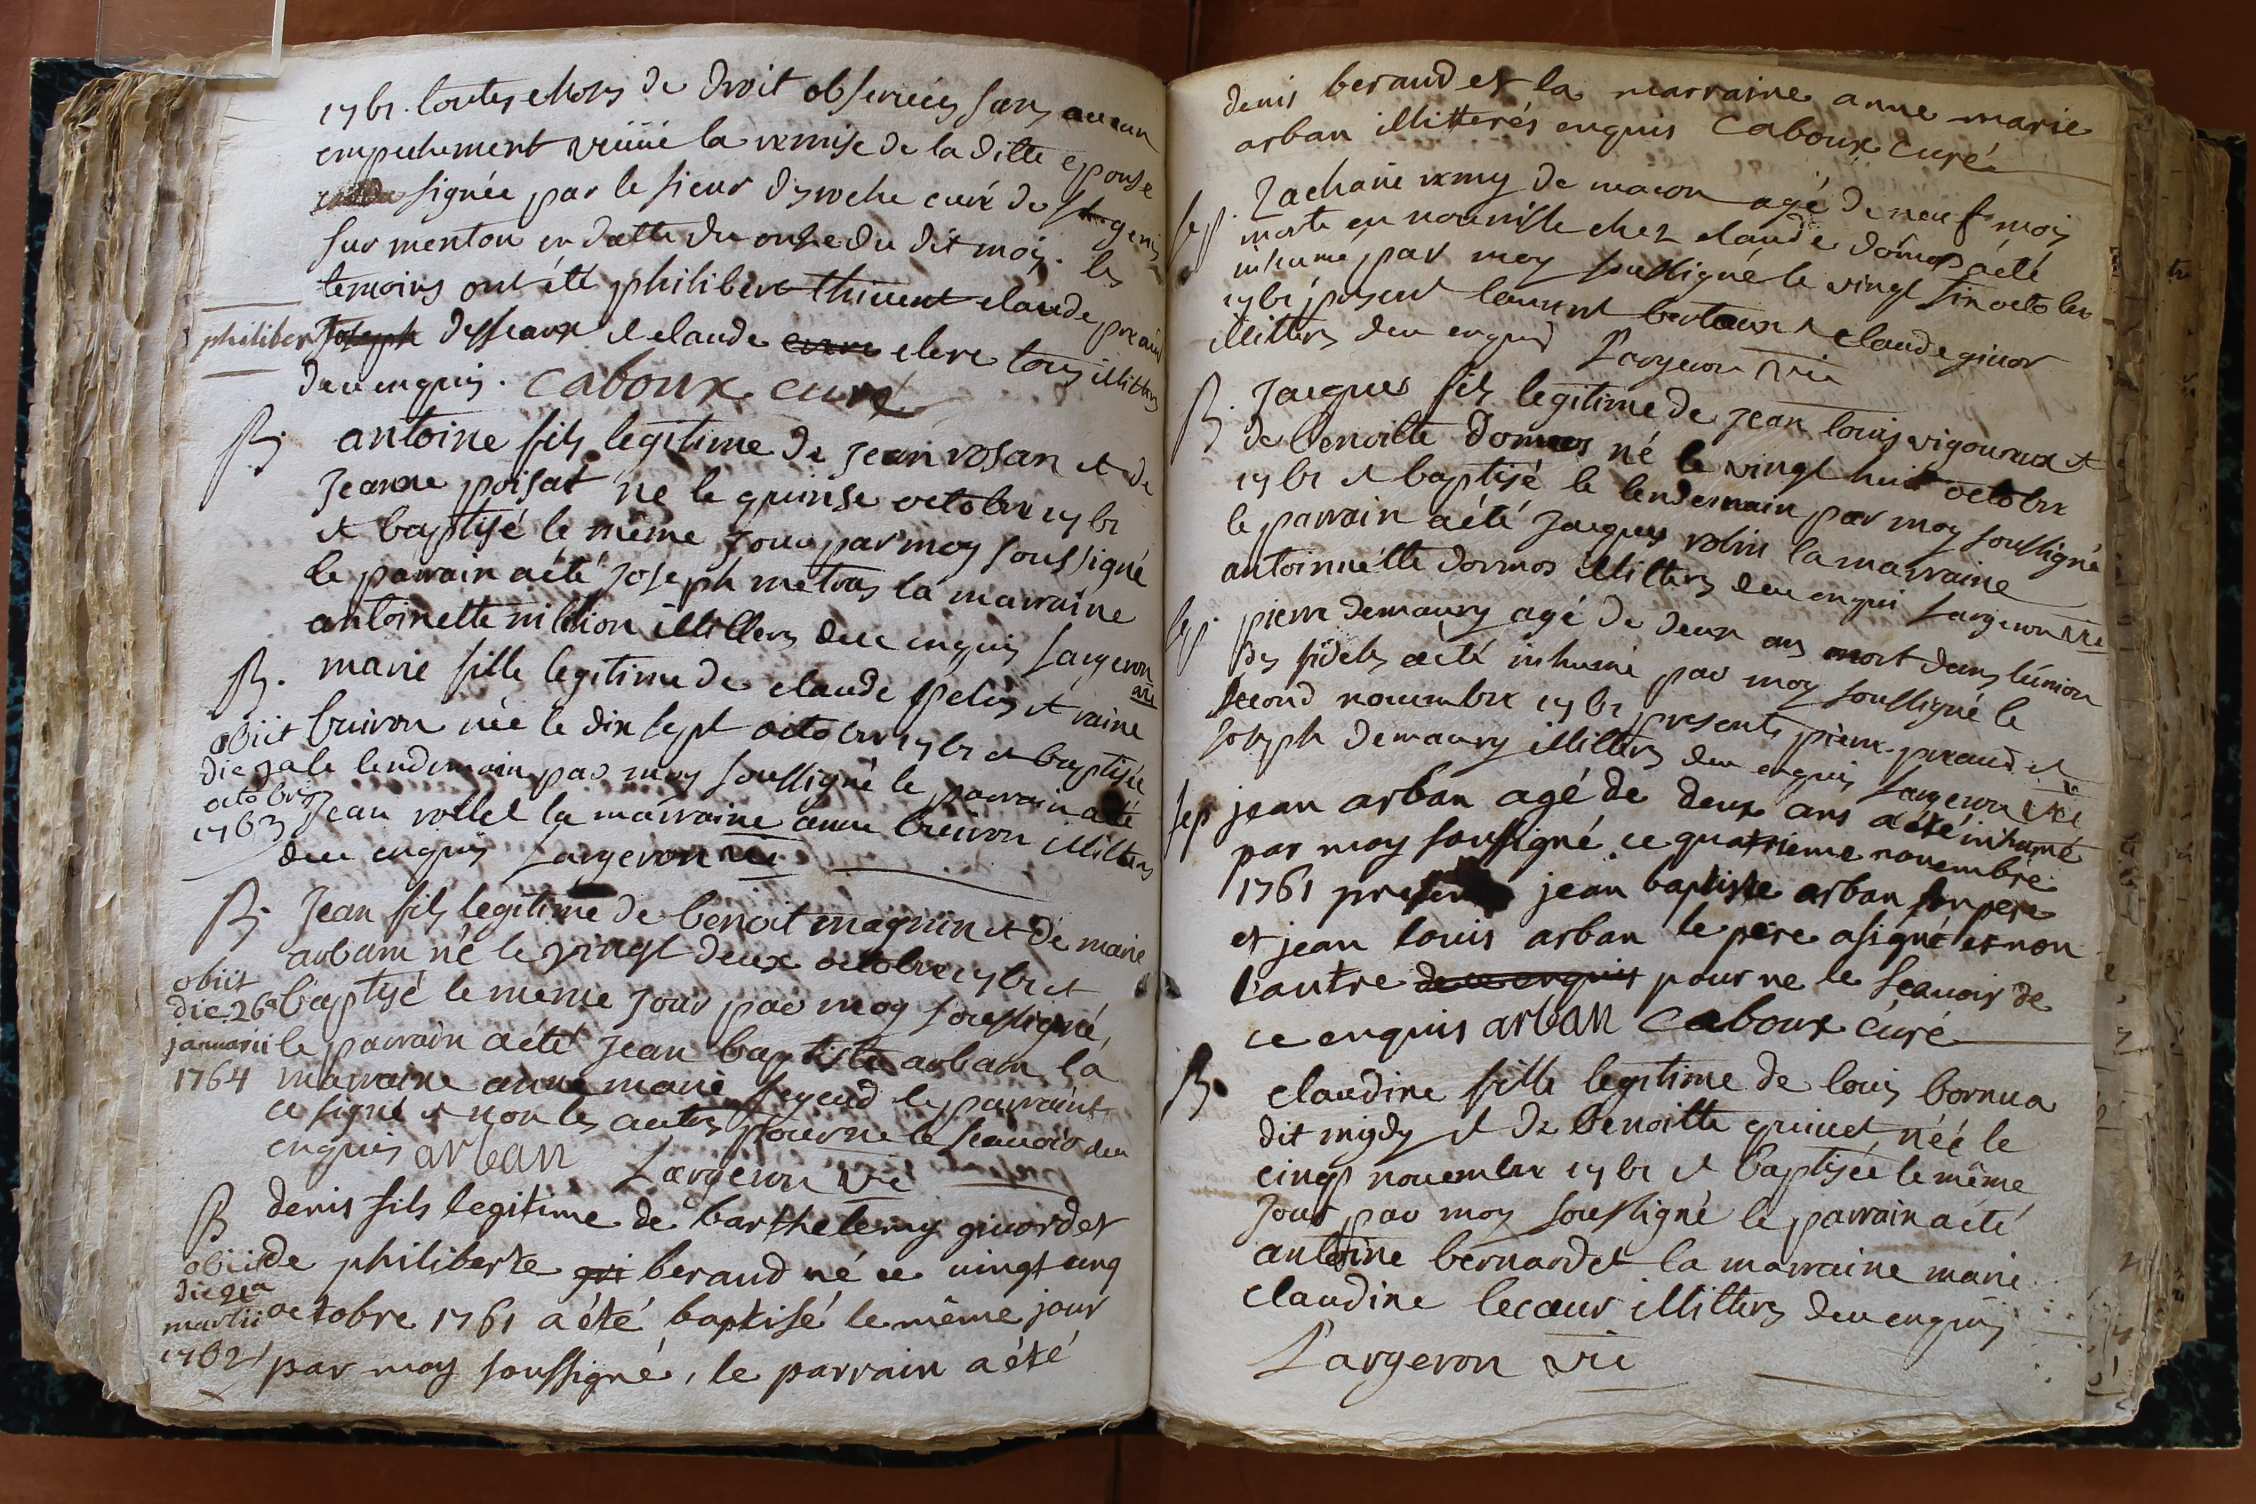 1761. toutes choses de droit observées sans aucun
empechement veüe la remise de la ditte epouse
signée par le sieur desroche curé de st genis
sur menton en datte du onze du dit mois. les
temoins ont été philibert thivent claude preaud
philibert
joseph desseaux et claude clere tous illitters
deu enquis. caboux curé
B. antoine fils legitime de jean rosan et de
jeanne poisat né le quinse octobre 1761
et baptisé le même jour par moy soussigné
le parrain a été joseph metras la marraine
antoinette illitters deu enquis Largeron
vic
B. marie fille legitime de claude pelus et raine
buiron née le dix sept octobre 1761 et baptisée
le lendemain par moy soussigné le parrain a été
jean rollet la marraine anne buiron illitters
deu enquis Largeron vic
obiit
die 9a
octobris
1763
B. Jean fils legitime de benoit magnin et de marie
arbam né le vingt deux octobre 1761 et
baptisé le meme jour par moy soussigné,
le parrain a été jean baptiste arbam la
marraine anne marie le parraint
a signé et non les autres pour ne le scauoir deu
enquis arban Largeron vic
obiit
die 26a
januarii
1764
B denis fils legitime de barthelemy givord et
de philiberte gri beraud né ce vingt cinq
octobre 1761 a été baptisé le même jour
par moy soussigné, le parrain a été
obiit
die 9a
martii
1762
denis beraud et la marraine anne marie
arban illitterés enquis caboux curé
sep. Zacharie remy de macon agé de neuf mois
morte en nourrisse chez claude dômas a été
inhumé par moy soussigné le vingt six octobre
1761 present laurent bertoux et claude givor
illitters deu enquis Largeron vic
B. Jacques fils legitime de jean louis vigouroux et
de benoitte domas né le vingt huit octobre
1761 et baptisé le lendemain par moy soussigné
le parrain a été jacques robin la marraine
antoinette dormos illitters deu enquis Largeron vic
sep. pierre demaury agé de deux ans mort dans lúnion
des fideles a été inhumé par moy soussigné le
second novembre 1761 presents pierre preaud et
joseph demaury illitters deu enquis Largeron vic
sep jean arban agé de deux ans a été inhumé
par moy soussigné ce quatrieme novembre
1761 presents jean baptiste arban son pere
et jean louis arban le pere a signé et non
l'autre de ce enquis pour ne le sçavoir de
ce enquis arban caboux curé
B. claudine fille legitime de louis bornua
dit migdy et de benoitte grivet, née le
cinq novembre 1761 et baptisée le même
jour par moy soussigné le parrain a été
antoine bernard et la marraine marie
claudine lecœur illitters deu enquis
Largeron vic